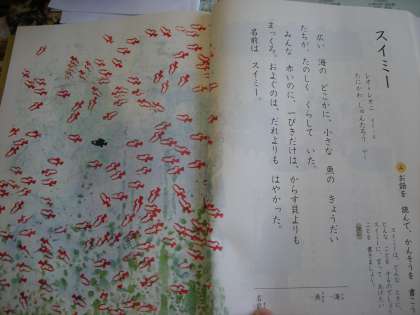 お話を 読んで、かんそうを 書こ
スイミー
レオ＝レオニ
たにかわ しゅんたろう
広い 海の どこかに、小さな 魚の きょうだい
たちが、たのしく くらして いた。
みんな 赤いのに、一ぴきだけは、からす貝よりも
まっくろ。およぐのは、だれよりも はやかった。
名前は スイミー。
海
魚
名前